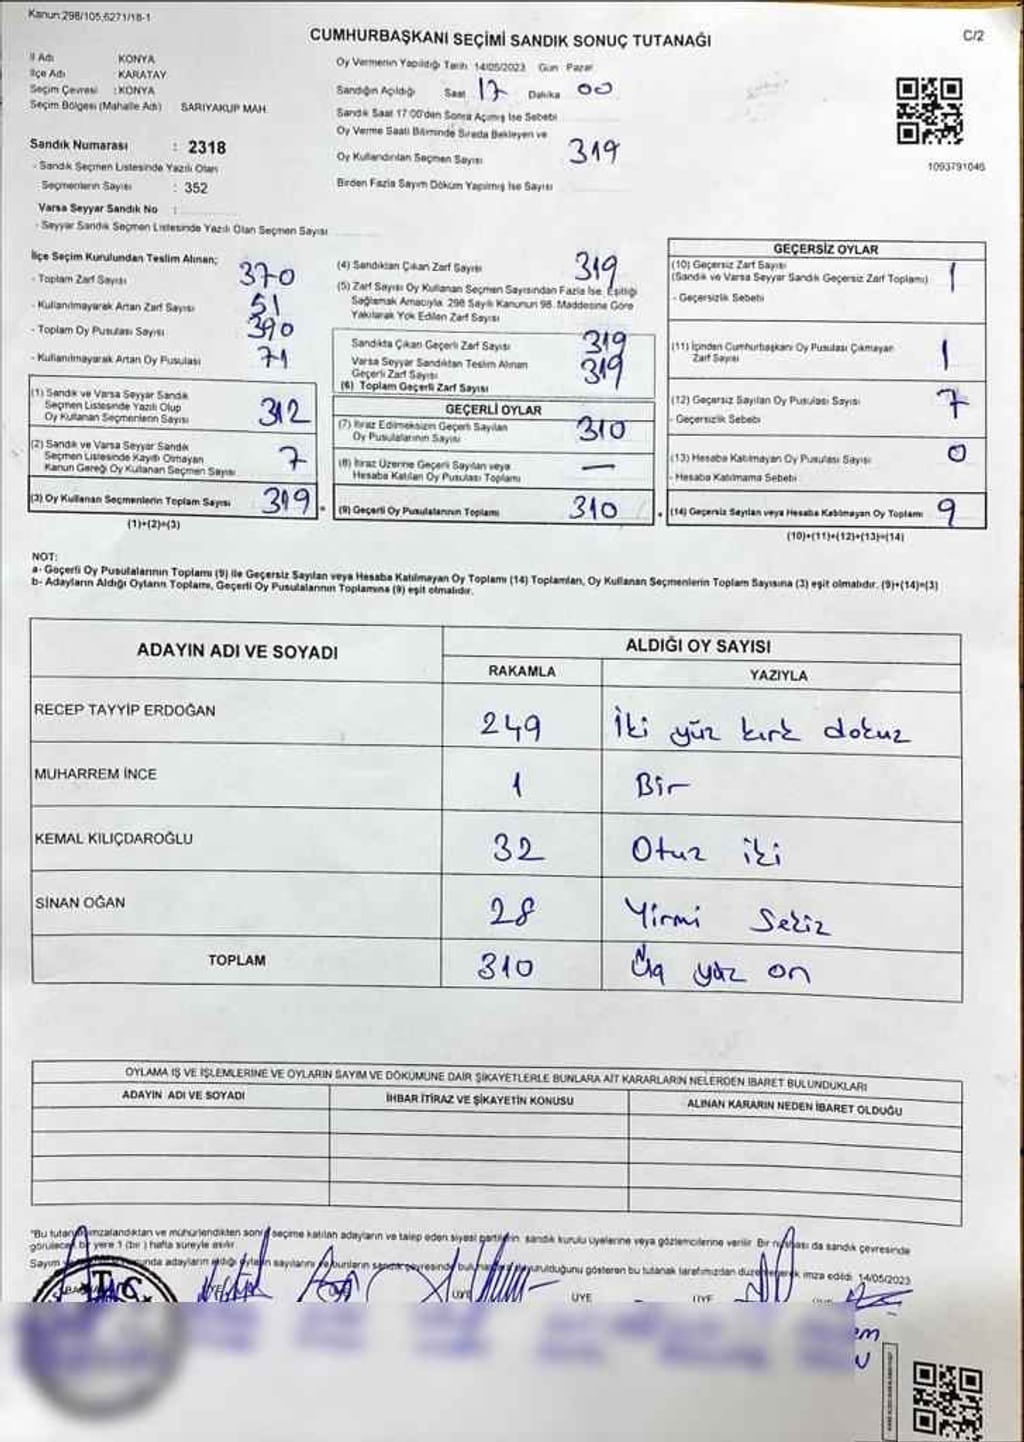 Kanun:298/105,6271/18-1
CUMHURBAŞKANI SEÇİMİ SANDIK SONUÇ TUTANAĞI
C/2
İl Adı KONYA
İlçe Adı : KARATAY
Seçim Çevresi : KONYA
Seçim Bölgesi (Mahalle Adı) SARIYAKUP MAH.
Sandık Numarası : 2318
- Sandık Seçmen Listesinde Yazılı Olan
Seçmenlerin Sayısı : 352
Varsa Seyyar Sandık No :
- Seyyar Sandık Seçmen Listesinde Yazılı Olan Seçmen Sayısı
Oy Vermenin Yapıldığı Tarih 14/05/2023 Gün Pazar
Sandığın Açıldığı Saat 17 Dakika 00
Sandık Saat 17:00'den Sonra Açılmış İse Sebebi
Oy Verme Saati Bitiminde Sırada Bekleyen ve
Oy Kullandırılan Seçmen Sayısı 319
Birden Fazla Sayım Döküm Yapılmış İse Sayısı
1093791046
İlçe Seçim Kurulundan Teslim Alınan;
- Toplam Zarf Sayısı 370
- Kullanılmayarak Artan Zarf Sayısı 51
- Toplam Oy Pusulası Sayısı 390
- Kullanılmayarak Artan Oy Pusulası 71
(1) Sandık ve Varsa Seyyar Sandık
Seçmen Listesinde Yazılı Olup
Oy Kullanan Seçmenlerin Sayısı 312
(2) Sandık ve Varsa Seyyar Sandık
Seçmen Listesinde Kaydı Olmayan
Kanun Gereği Oy Kullanan Seçmen Sayısı 7
(3) Oy Kullanan Seçmenlerin Toplam Sayısı 319
(1)+(2)=(3)
(4) Sandıktan Çıkan Zarf Sayısı 319
(5) Zarf Sayısı Oy Kullanan Seçmen Sayısından Fazla İse, Eşitliği
Sağlamak Amacıyla, 298 Sayılı Kanunun 98. Maddesine Göre
Yakılarak Yok Edilen Zarf Sayısı
Sandıkta Çıkan Geçerli Zarf Sayısı 319
Varsa Seyyar Sandıktan Teslim Alınan
Geçerli Zarf Sayısı 319
(6) Toplam Geçerli Zarf Sayısı
GEÇERLİ OYLAR
(7) İtiraz Edilmeksizin Geçerli Sayılan
Oy Pusulalarının Sayısı 310
(8) İtiraz Üzerine Geçerli Sayılan veya
Hesaba Katılan Oy Pusulası Toplamı —
(9) Geçerli Oy Pusulalarının Toplamı 310
GEÇERSİZ OYLAR
(10) Geçersiz Zarf Sayısı 1
(Sandık ve Varsa Seyyar Sandık Geçersiz Zarf Toplamı)
- Geçersizlik Sebebi
(11) İçinden Cumhurbaşkanı Oy Pusulası Çıkmayan
Zarf Sayısı 1
(12) Geçersiz Sayılan Oy Pusulası Sayısı 7
- Geçersizlik Sebebi
(13) Hesaba Katılmayan Oy Pusulası Sayısı 0
- Hesaba Katılmama Sebebi
(14) Geçersiz Sayılan veya Hesaba Katılmayan Oy Toplamı 9
(10)+(11)+(12)+(13)=(14)
NOT:
a- Geçerli Oy Pusulalarının Toplamı (9) ile Geçersiz Sayılan veya Hesaba Katılmayan Oy Toplamı (14) Toplamları, Oy Kullanan Seçmenlerin Toplam Sayısına (3) eşit olmalıdır. (9)+(14)=(3)
b- Adayların Aldığı Oyların Toplamı, Geçerli Oy Pusulalarının Toplamına (9) eşit olmalıdır.
ADAYIN ADI VE SOYADI ALDIĞI OY SAYISI
RAKAMLA YAZIYLA
RECEP TAYYİP ERDOĞAN 249 İki yüz kırk dokuz
MUHARREM İNCE 1 Bir
KEMAL KILIÇDAROĞLU 32 Otuz iki
SİNAN OĞAN 28 Yirmi Sekiz
TOPLAM 310 Üç yüz on
OYLAMA İŞ VE İŞLEMLERİNE VE OYLARIN SAYIM VE DÖKÜMÜNE DAİR ŞİKAYETLERLE BUNLARA AİT KARARLARIN NELERDEN İBARET BULUNDUKLARI
ADAYIN ADI VE SOYADI İHBAR İTİRAZ VE ŞİKAYETİN KONUSU ALINAN KARARIN NEDEN İBARET OLDUĞU
"Bu tutanak imzalandıktan ve mühürlendikten sonra seçime katılan adayların ve talep eden siyasi partilerin sandık kurulu üyelerine veya gözlemcilerine verilir. Bir nüshası da sandık çevresinde
görülecek bir yere 1 (bir) hafta süreyle asılır.
Sayım adayların aldığı oyların sayılarını ve bunların sandık çevresinde duyurulduğunu gösteren bu tutanak tarafımızdan düzenlenerek imza edildi. 14/05/2023
T.C.
ÜYE ÜYE ÜYE ÜYE